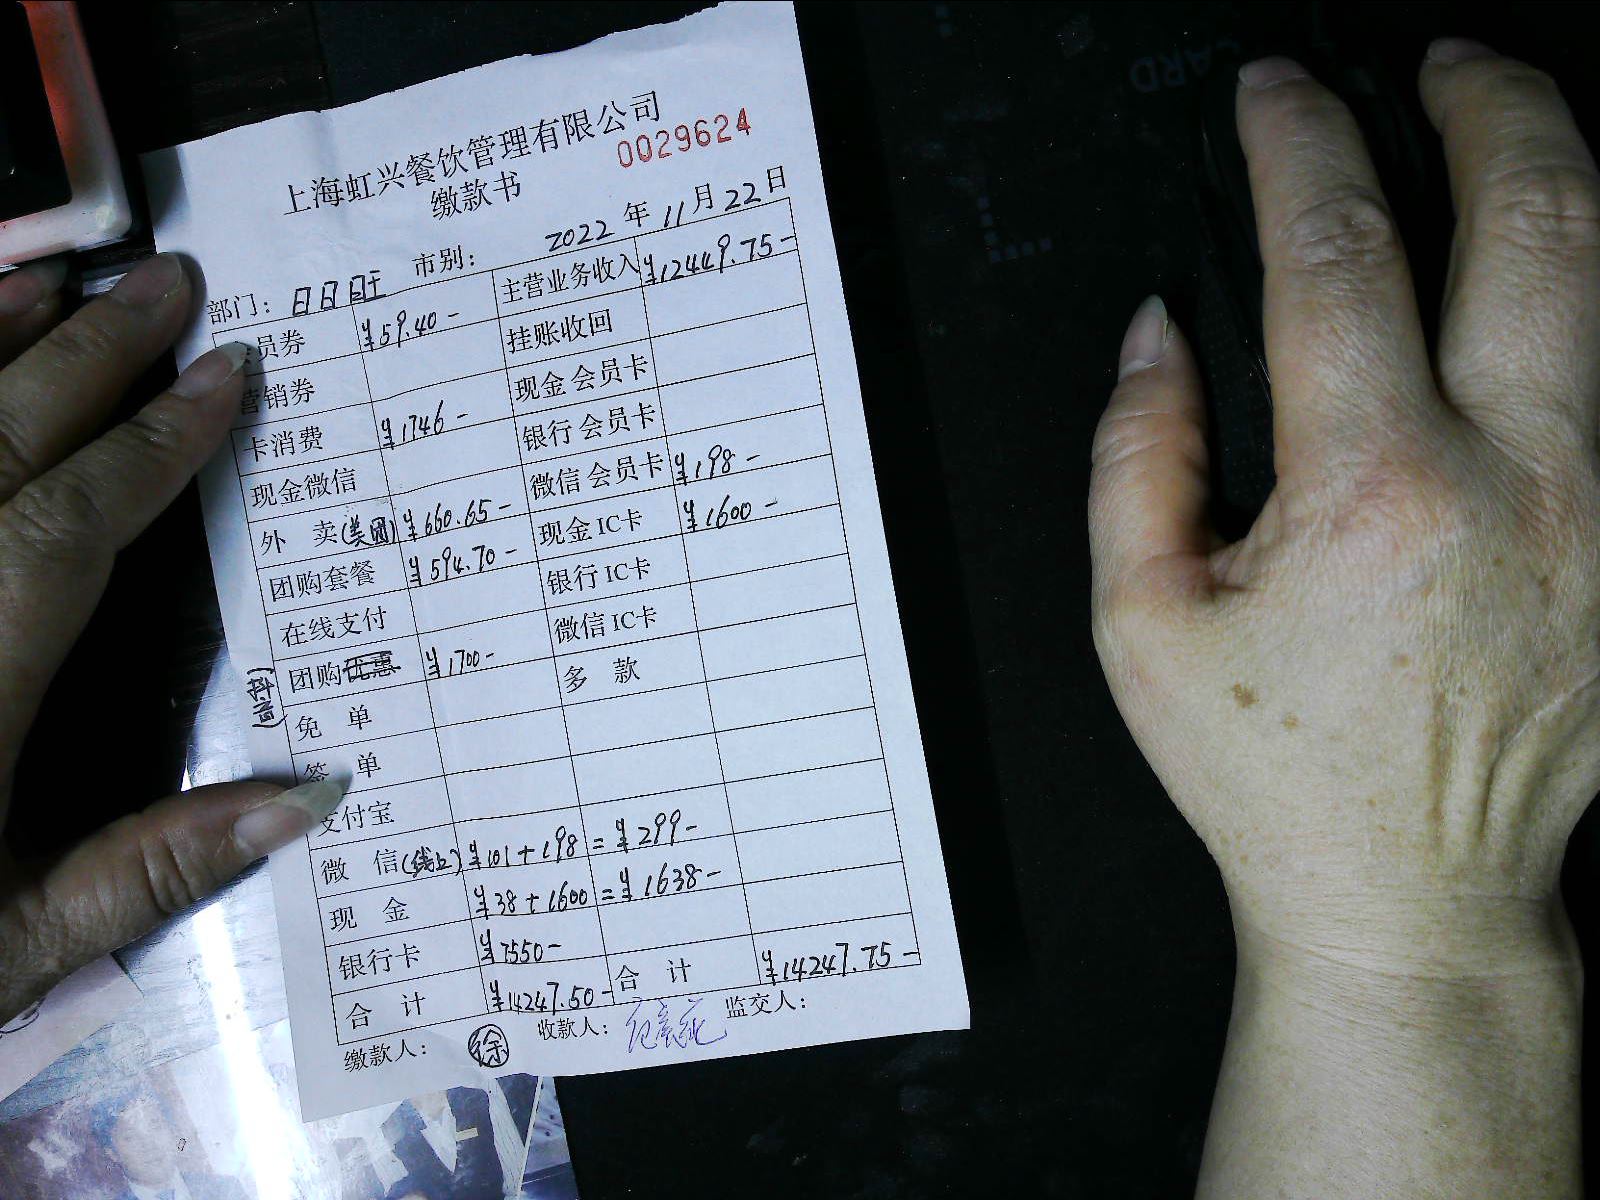 上海虹兴餐饮管理有限公司
0029624
缴款书
部门： 日日旺 市别： 2022 年 11 月 22 日
员券 ¥59.40- 主营业务收入 ¥12449.75-
营销券 挂账收回
卡消费 ¥1746- 现金会员卡
现金微信 银行会员卡
外 卖(美团) ¥660.65- 微信会员卡 ¥198-
团购套餐 ¥594.70- 现金IC卡 ¥1600-
在线支付 银行IC卡
团购优惠 ¥1700- 微信IC卡
免 单 多 款
签 单
支付宝
微 信(线上) ¥101+198 = ¥299-
现 金 ¥38+1600 = ¥1638-
银行卡 ¥7550-
合 计 ¥14247.50- 合 计 ¥14247.75-
缴款人： 徐 收款人： 监交人：
CARD